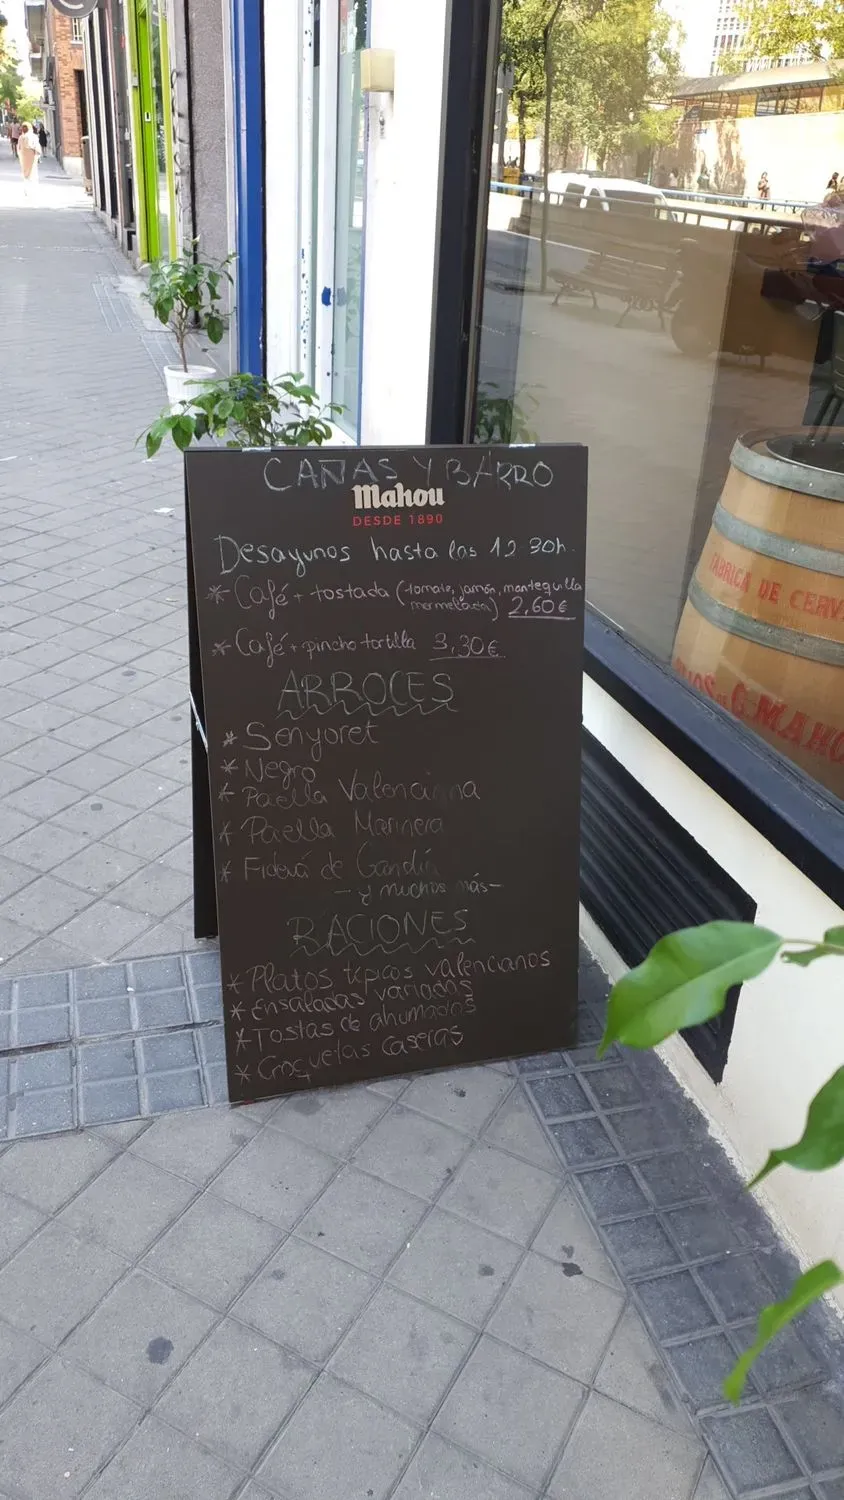 CAÑAS Y BARRO
Mahou
DESDE 1890
Desayunos hasta las 12 30h.
* Café + tostada (tomate, jamón, mantequilla
mermelada) 2,60€
* Café + pincho tortilla 3,30€
ARROCES
* Senyoret
* Negro
* Paella Valenciana
* Paella Marinera
* Fideuá de Gandía
- y muchos más -
RACIONES
* Platos típicos valencianos
* Ensaladas variadas
* Tostas de ahumados
* Croquetas caseras
FABRICA DE CERV
HIJOS DE C. MAHO